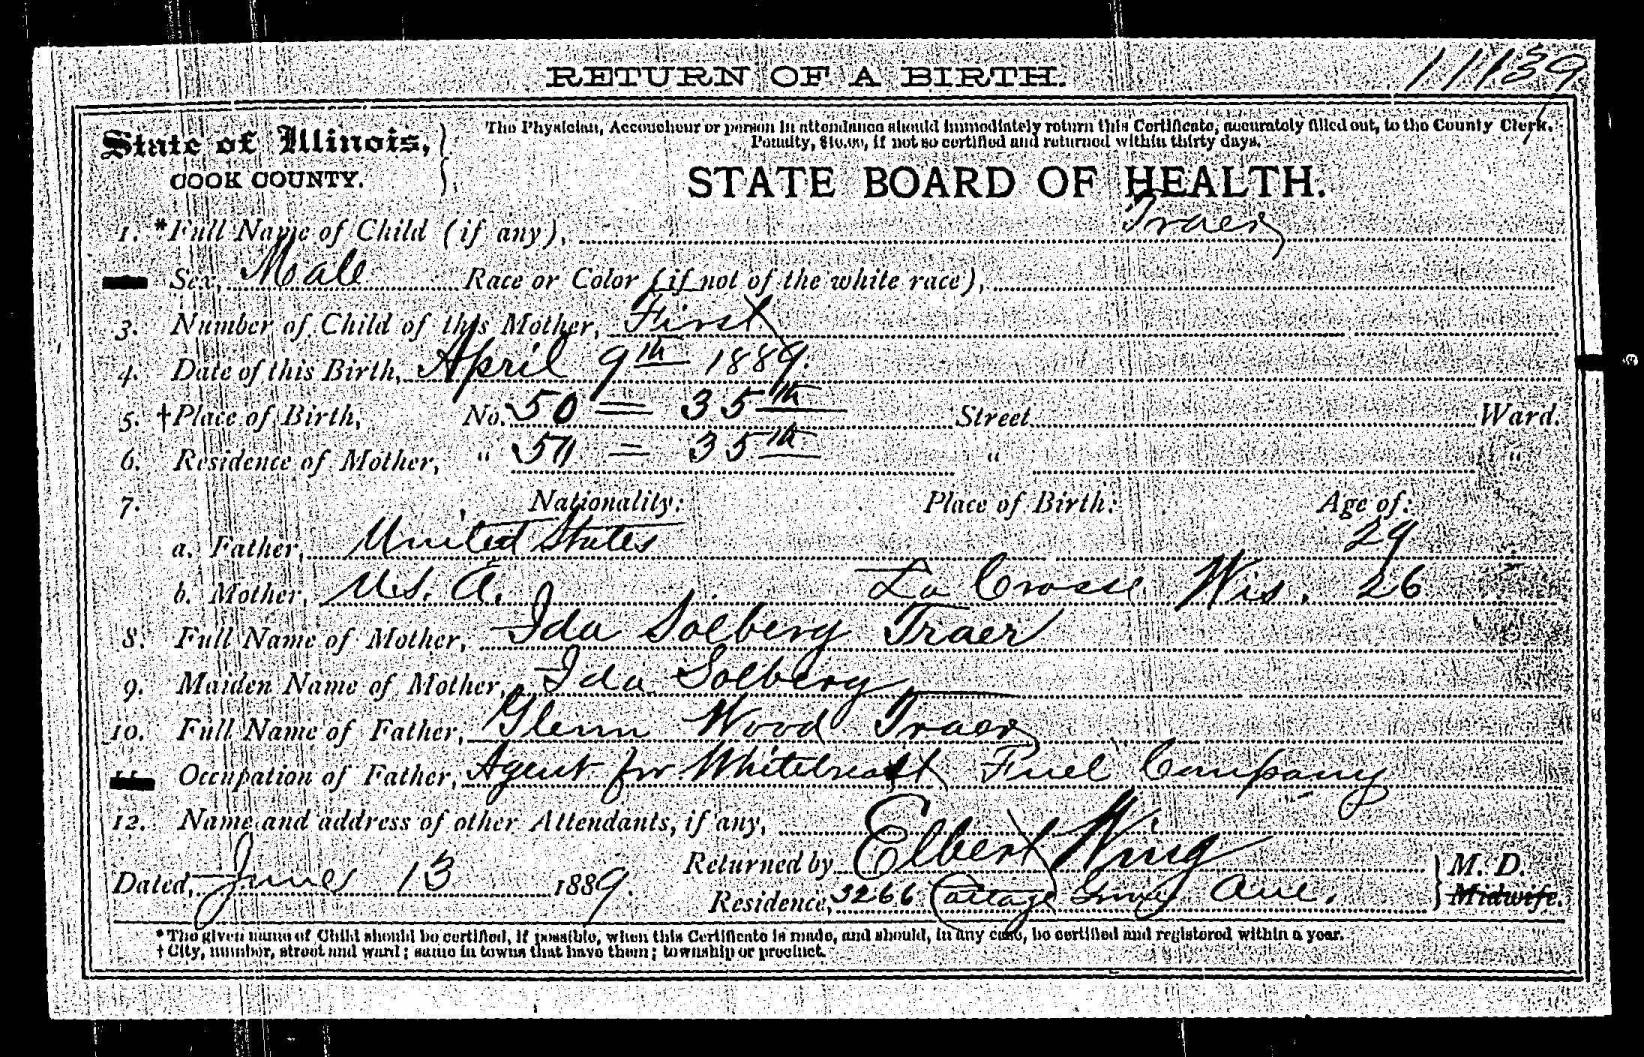 RETURN OF A BIRTH. 11139
State of Illinois, COOK COUNTY.
The Physician, Accoucheur or person in attendance should immediately return this Certificate, accurately filled out, to the County Clerk.
Penalty, $10.00, if not so certified and returned within thirty days.
STATE BOARD OF HEALTH.
1. *Full Name of Child (if any), Traer
Sex, Male Race or Color (if not of the white race),
3. Number of Child of this Mother, First
4. Date of this Birth, April 9th 1889.
5. †Place of Birth, No. 50 — 35th Street Ward.
6. Residence of Mother, " 50 = 35th " "
7. Nationality: Place of Birth: Age of:
a. Father, United States 29
b. Mother, U.S.A. La Crosse Wis. 26
8. Full Name of Mother, Ida Solberg Traer
9. Maiden Name of Mother, Ida Solberg
10. Full Name of Father, Glenn Wood Traer
11. Occupation of Father, Agent for Whitebreast Fuel Company
12. Name and address of other Attendants, if any,
Dated, June 13 1889. Returned by Elbert Wing M. D.
Residence, 3266 Cottage Grove Ave. Midwife.
*The given name of Child should be certified, if possible, when this Certificate is made, and should, in any case, be certified and registered within a year.
†City, number, street and ward; same in towns that have them; township or precinct.